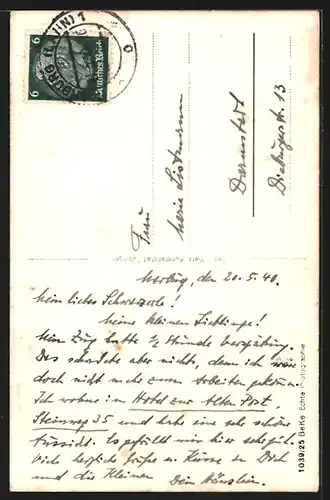 6
6
Deutsches Reich
BURG (LAHN) 1
Frau
Darmstadt
Dieburgerstr. 13
Marburg, den 20.5.40.
Mein liebes
Meine kleinen Lieblinge!
Mein Zug hatte ½ Stunde Verspätung.
Das schadete aber nichts, denn ich wäre
doch nicht mehr zum Arbeiten gekommen.
Ich wohne im Hotel zur Alten Post,
Steinweg 35 und habe eine sehr schöne
Aussicht. Es gefällt mir hier sehr gut.
Viel herzliche Grüße u. Küsse an Dich
und die Kleinen Dein
1039/25 BeKe Echte Photographie